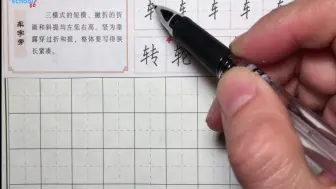 车字旁
三横式的短横、撇折的折
画和斜提与左低右高、竖为垂
露穿过折和提、整体要写得狭
长紧凑。
车 车 车 车 车
转 轮